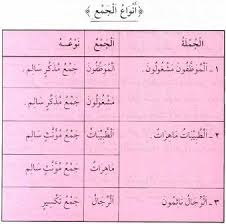 ﴿ أَنْوَاعُ الْجَمْعِ ﴾
اَلْجُمْلَةُ اَلْجَمْعُ نَوْعُـهُ
١ - اَلْمُوَظَّفُونَ مَشْغُولُونَ. اَلْمُوَظَّفُونَ جَمْعُ مُذَكَّرٍ سَالِم.
مَشْغُولُونَ جَمْعُ مُذَكَّرٍ سَالِم.
٢ - اَلطَّبِيبَاتُ مَاهِرَاتٌ. اَلطَّبِيبَاتُ جَمْعُ مُؤَنَّثٍ سَالِم.
مَاهِرَاتٌ جَمْعُ مُؤَنَّثٍ سَالِم.
٣ - اَلرِّجَالُ نَائِمُونَ. اَلرِّجَالُ جَمْعُ تَكْسِيرٍ